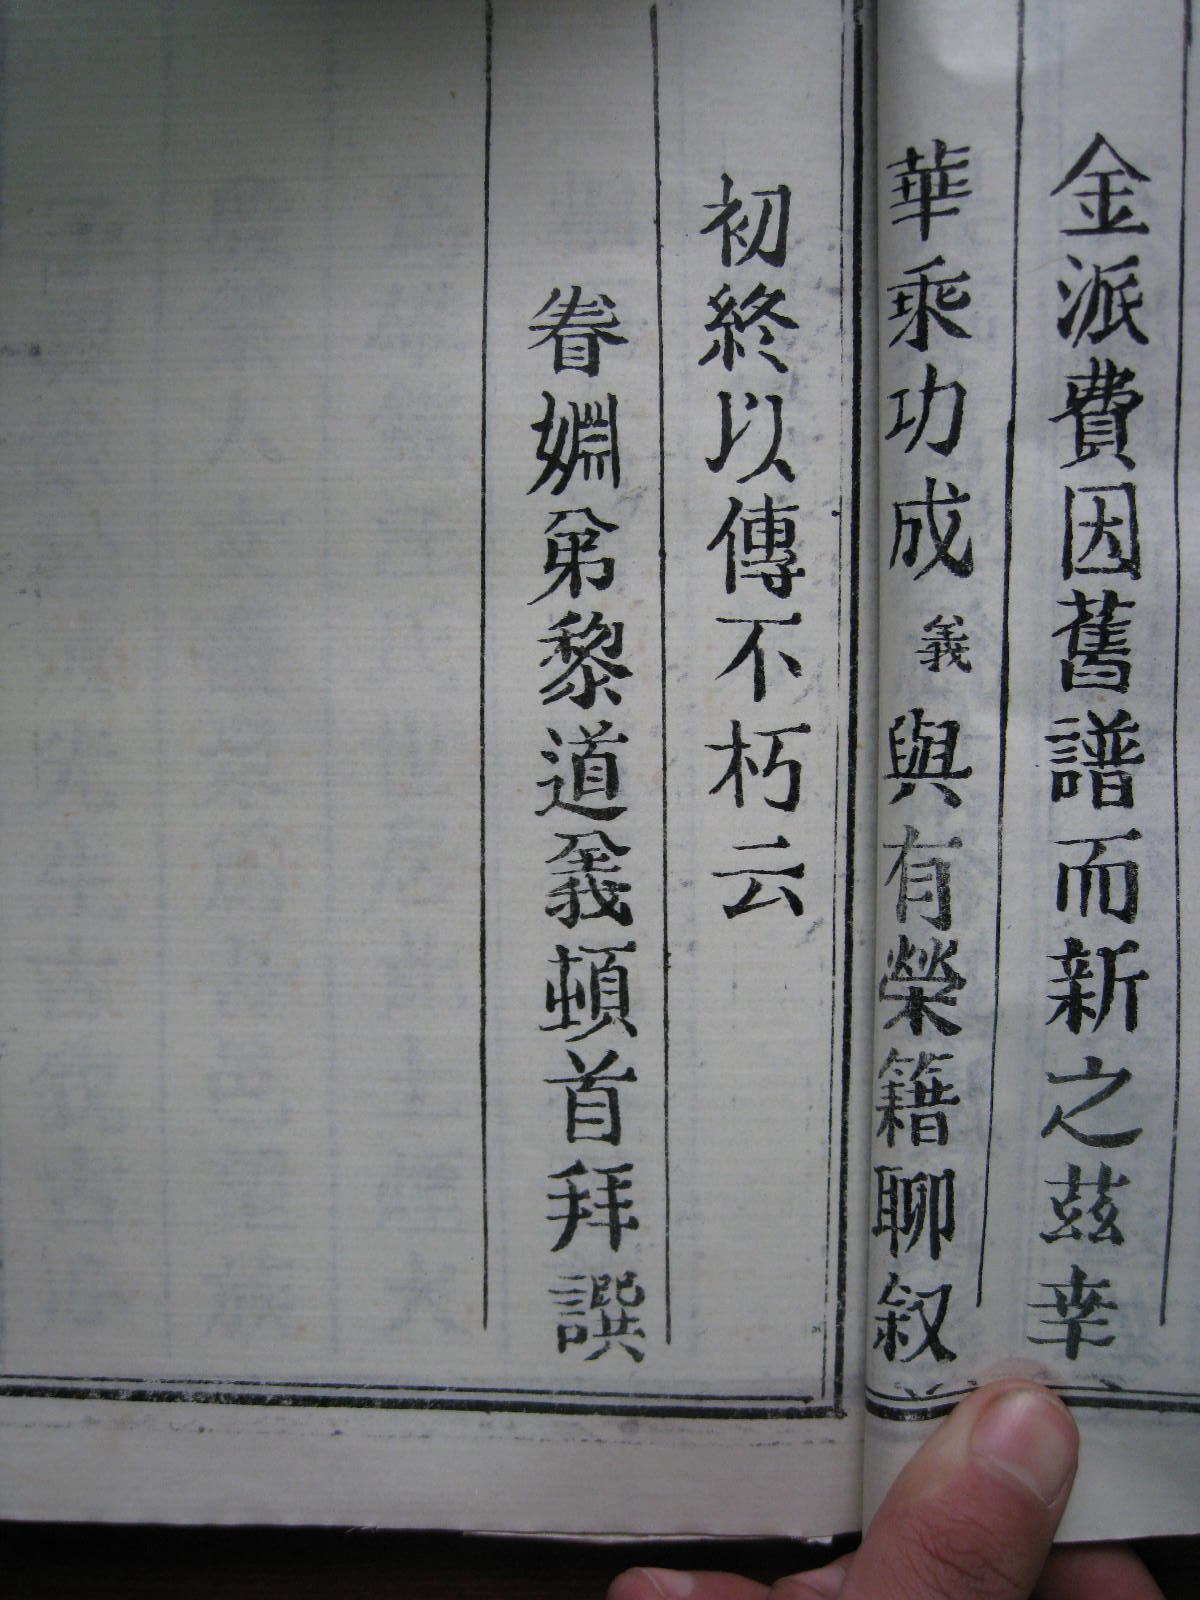 金派費因舊譜而新之茲幸
華乘功成義與有榮籍聊叙
初終以傳不朽云
眷姻弟黎道義頓首拜譔